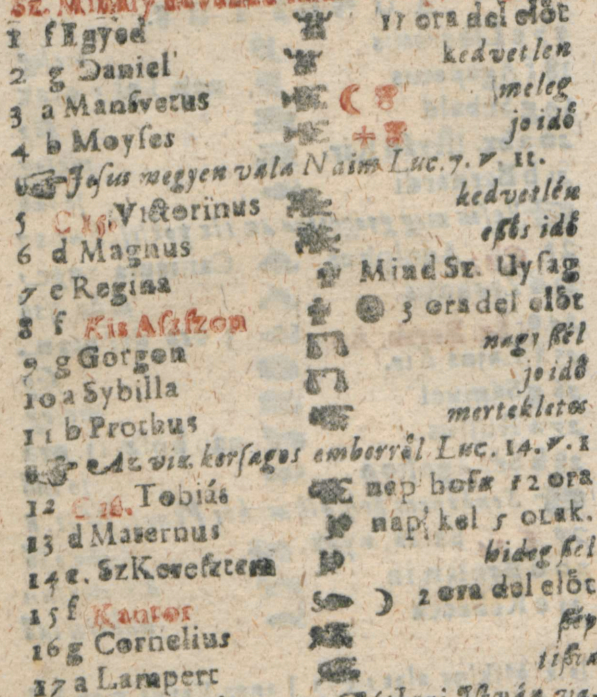 Sz. Mihály
1 f Egyed 11 ora del elöt
2 g Daniel kedvetlen
3 a Mansvetus meleg
4 b Moyses jo idö
Jesus megyen vala Naim Luc. 7. v. 11.
5 C 15. Victorinus kedvetlén
6 d Magnus essös idö
7 e Regina Mind Sz. Uysag
8 f Kis Aszszon 3 ora del elöt
9 g Gorgon nagy szél
10 a Sybilla jo idö
11 b Prothus mertekletos
Az viz korsagos emberröl Luc. 14. v. 1
12 C 16. Tobiás nap hosz 12 ora
13 d Maternus nap kel 5 orak.
14 e. Sz Kereszten hideg szel
15 f Kantor 2 ora del elöt
16 g Cornelius szep
17 a Lampert tiszta